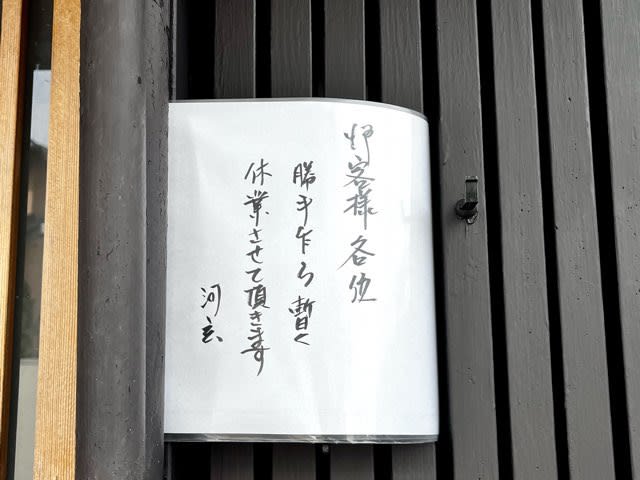 御客様 各位
勝手乍ら 暫く
休業させて頂きます
河玄